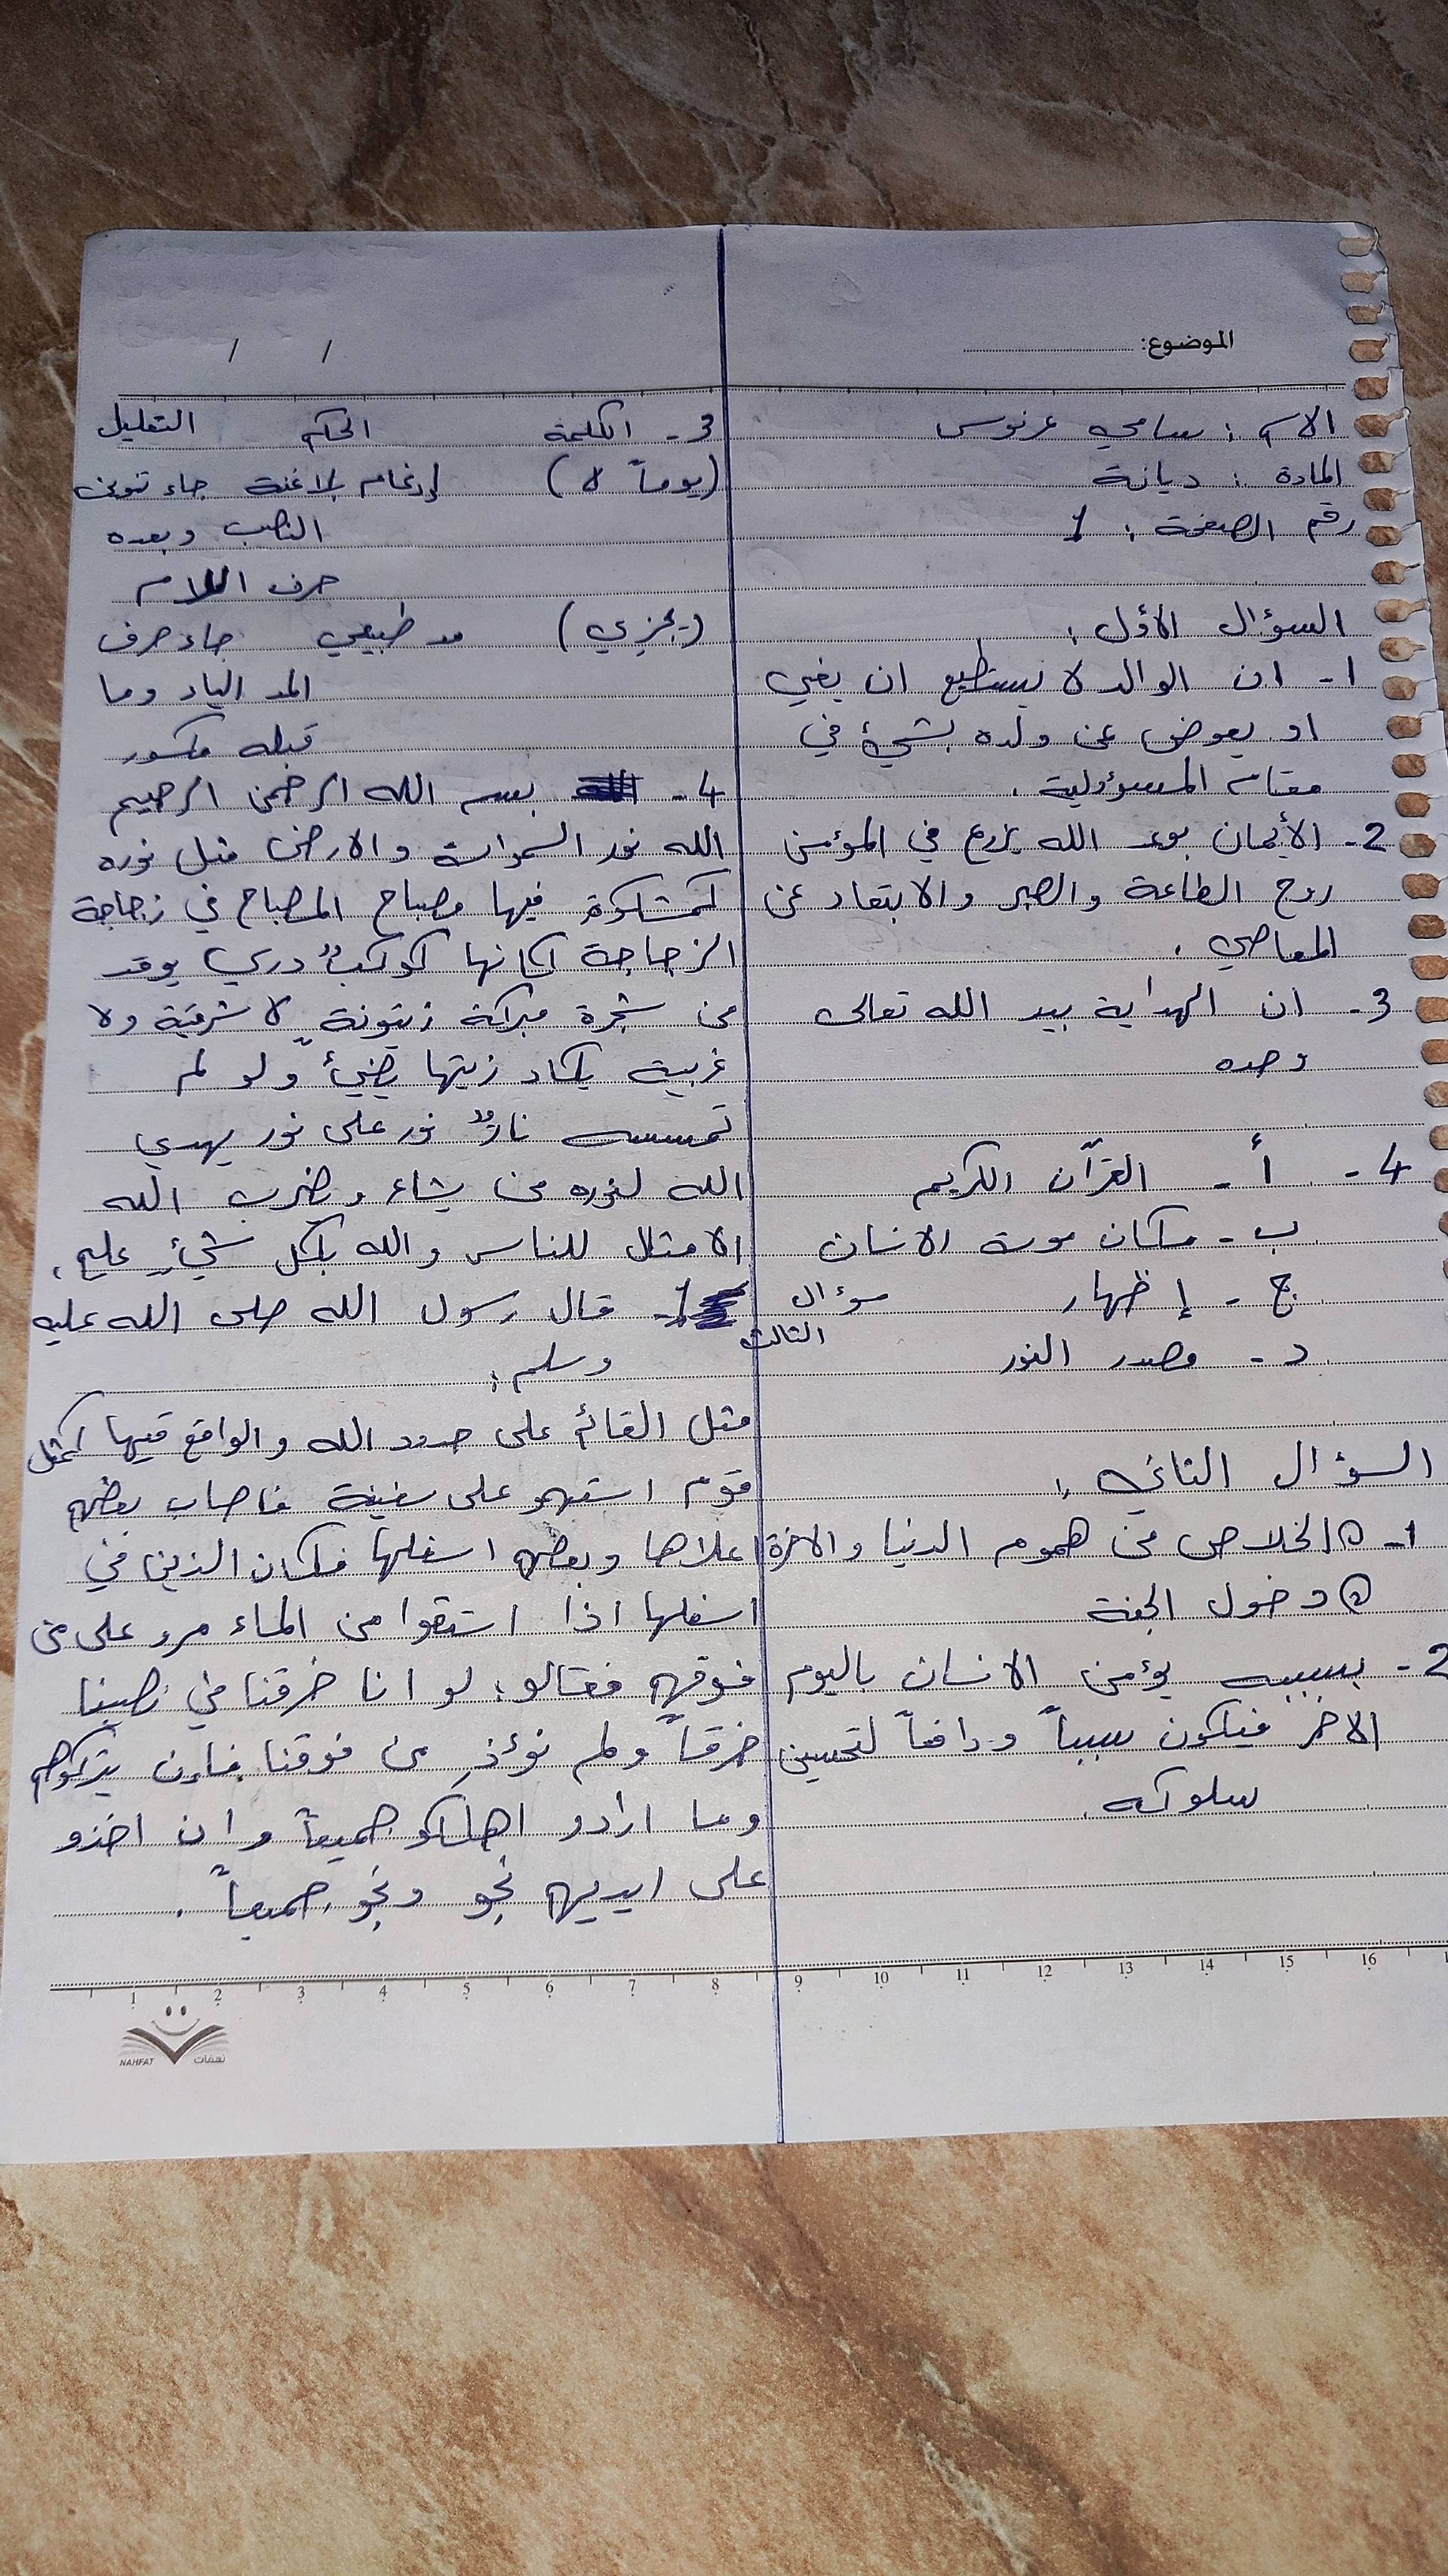 الموضوع:
/ /
الاسم : سامي عرنوس
المادة : ديانة
رقم الصفحة : 1
السؤال الأول :
1- ان الوالد لا يستطيع ان يغني
او يعوض عن ولده بشيئ في
مقام المسؤولية .
2- الأيمان بوعد الله يزرع في المؤمن
روح الطاعة والصبر والابتعاد عن
المعاصي .
3- ان الهداية بيد الله تعالى
وحده
4- أ- القرآن الكريم
ب- مكان موت الانسان
ج- إظهار
د- مصدر النور
السؤال الثاني :
1- ① الخلاص من هموم الدنيا والاخرة
② دخول الجنة
2- بسبب يؤمن الانسان باليوم
الاخر فيكون سبباً ودافعاً لتحسين
سلوكه .
3- الكلمة الحكم التعليل
(يوماً لا) إدغام بلاغنة جاء تنوين
النصب وبعده
حرف اللام
(يجزي) مد طبيعي جاء حرف
المد الياء وما
قبله مكسور
4- بسم الله الرحمن الرحيم
الله نور السموات والارض مثل نوره
كمشكوة فيها مصباح المصباح في زجاجة
الزجاجة كانها كوكبٌ دري يوقد
من شجرة مبركة زيتونةٍ لا شرقية ولا
غربية يكاد زيتها يضيئ ولو لم
تمسسه نارٌ نور على نور يهدي
الله لنوره من يشاء ويضرب الله
الامثال للناس والله بكل شيئٍ عليم .
سؤال الثالث
1- قال رسول الله صلى الله عليه
وسلم :
مثل القائم على حدود الله والواقع فيها كمثل
قوم استهمو على سفينة فاصاب بعضهم
اعلاها وبعضهم اسفلها فكان الذين في
اسفلها اذا استقوا من الماء مرو على من
فوقهم فقالو : لو انا خرقنا في نصيبنا
خرقاً ولم نؤذِ من فوقنا فإن يتركوهم
وما ارادو اهلكو جميعاً وان اخذو
على ايديهم نجو ونجو جميعاً .
1 2 3 4 5 6 7 8 9 10 11 12 13 14 15 16
NAHFAT نهفات